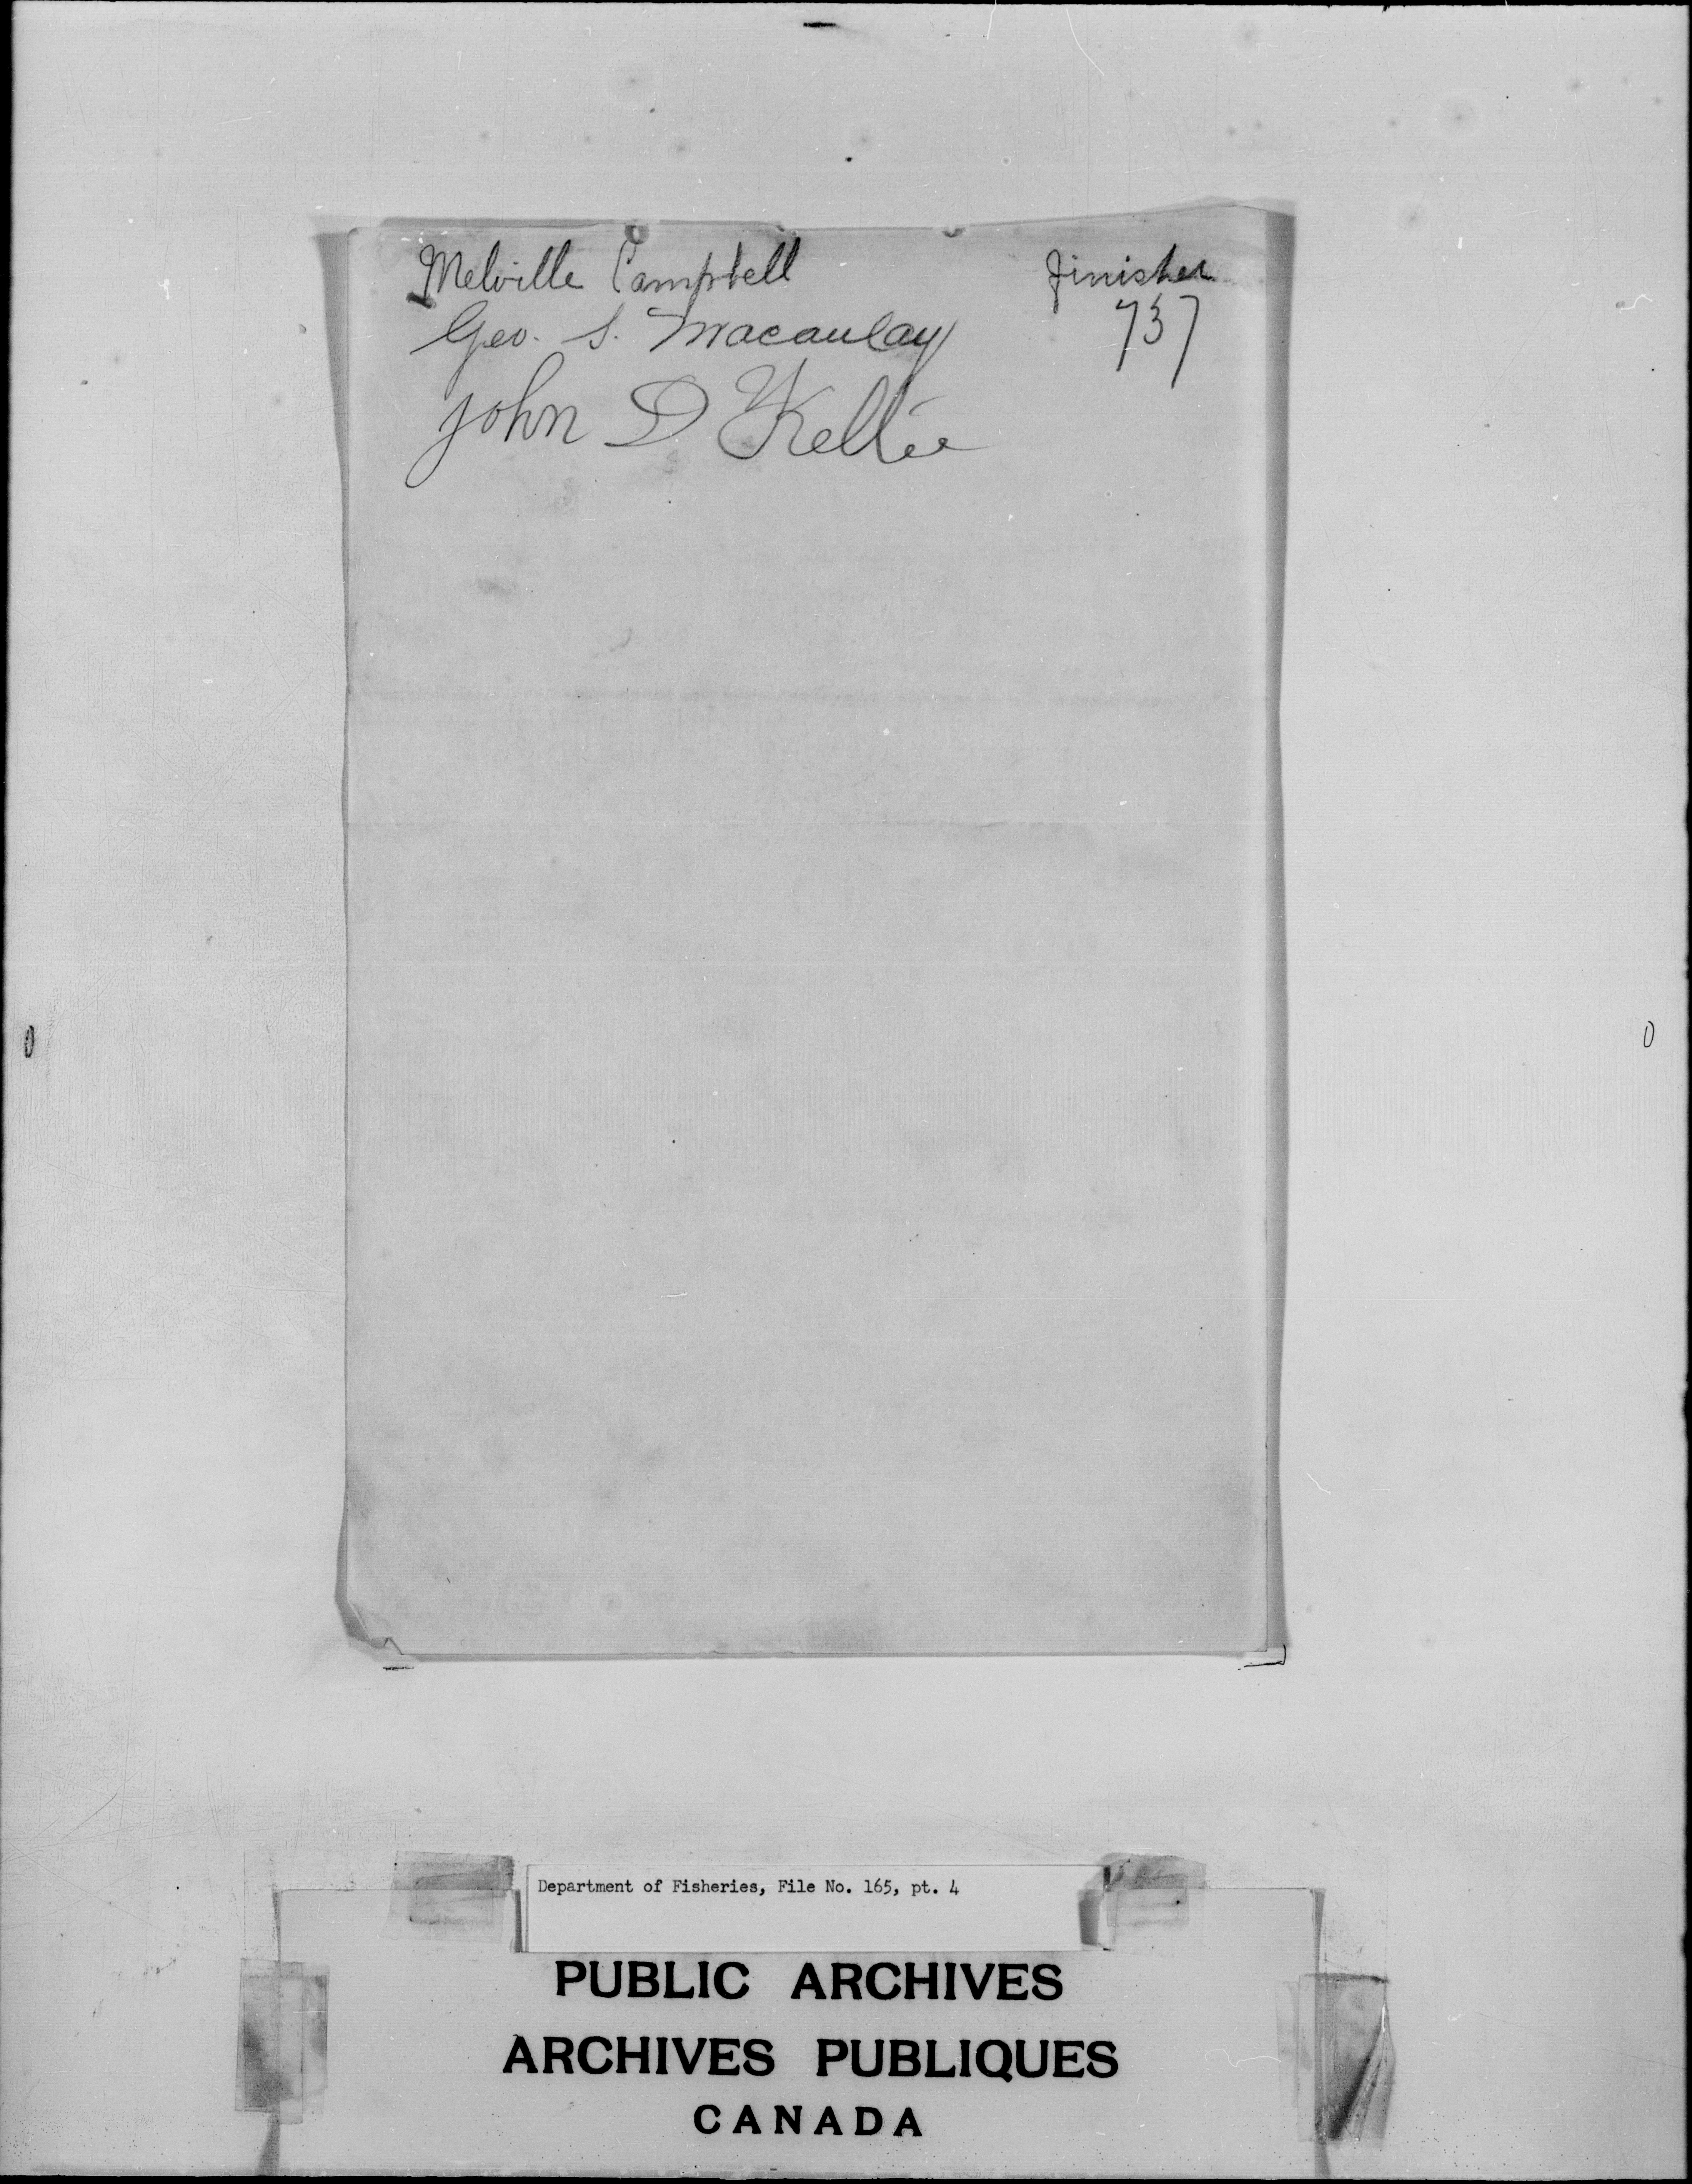 Melville Campbell finisher
Geo. S. Macaulay 737
John D Kellie
Department of Fisheries, File No. 165, pt. 4
PUBLIC ARCHIVES
ARCHIVES PUBLIQUES
CANADA